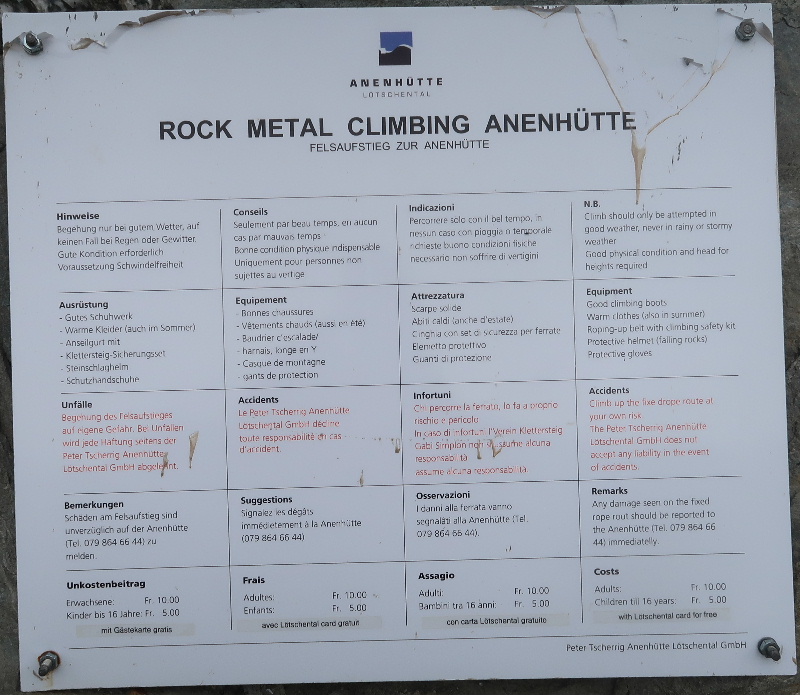 ANENHÜTTE
LÖTSCHENTAL
ROCK METAL CLIMBING ANENHÜTTE
FELSAUFSTIEG ZUR ANENHÜTTE
Hinweise
Begehung nur bei gutem Wetter, auf
keinen Fall bei Regen oder Gewitter.
Gute Kondition erforderlich
Voraussetzung Schwindelfreiheit
Conseils
Seulement par beau temps, en aucun
cas par mauvais temps
Bonne condition physique indispensable
Uniquement pour personnes non
sujettes au vertige
Indicazioni
Percorrere solo con il bel tempo, in
nessun caso con pioggia o temporale
richieste buono condizioni fisiche
necessario non soffrire di vertigini
N.B.
Climb should only be attempted in
good weather, never in rainy or stormy
weather
Good physical condition and head for
heights required
Ausrüstung
- Gutes Schuhwerk
- Warme Kleider (auch im Sommer)
- Anseilgurt mit
- Klettersteig-Sicherungsset
- Steinschlaghelm
- Schutzhandschuhe
Equipement
- Bonnes chaussures
- Vêtements chauds (aussi en été)
- Baudrier d'escalade/
- harnais, longe en Y
- Casque de montagne
- gants de protection
Attrezzatura
Scarpe solide
Abiti caldi (anche d'estate)
Cinghia con set di sicurezza per ferrate
Elemetto protettivo
Guanti di protezione
Equipment
Good climbing boots
Warm clothes (also in summer)
Roping-up belt with climbing safety kit
Protective helmet (falling rocks)
Protective gloves
Unfälle
Begehung des Felsaufstieges
auf eigene Gefahr. Bei Unfällen
wird jede Haftung seitens der
Peter Tscherrig Anenhütte
Lötschental GmbH abgelehnt.
Accidents
Le Peter Tscherrig Anenhütte
Lötschental GmbH décline
toute responsabilité en cas
d'accident.
Infortuni
Chi percorre la ferrata, lo fa a proprio
rischio e pericolo
In caso di infortuni l'Verein Klettersteig
Gabi Simplon non assume alcuna
responsabilità
assume alcuna responsabilità.
Accidents
Climb up the fixe drope route at
your own risk
The Peter Tscherrig Anenhütte
Lötschental GmbH does not
accept any liability in the event
of accidents.
Bemerkungen
Schäden am Felsaufstieg sind
unverzüglich auf der Anenhütte
(Tel. 079 864 66 44) zu
melden.
Suggestions
Signalez les dégâts
immédietement à la Anenhütte
(079 864 66 44)
Osservazioni
I danni alla ferrata vanno
segnalati alla Anenhütte (Tel.
079 864 66 44).
Remarks
Any damage seen on the fixed
rope rout should be reported to
the Anenhütte (Tel. 079 864 66
44) immediatelly.
Unkostenbeitrag
Erwachsene: Fr. 10.00
Kinder bis 16 Jahre: Fr. 5.00
mit Gästekarte gratis
Frais
Adultes: Fr. 10.00
Enfants: Fr. 5.00
avec Lötschental card gratuit
Assagio
Adulti: Fr. 10.00
Bambini tra 16 anni: Fr. 5.00
con carta Lötschental gratuito
Costs
Adults: Fr. 10.00
Children till 16 years: Fr. 5.00
with Lötschental card for free
Peter Tscherrig Anenhütte Lötschental GmbH